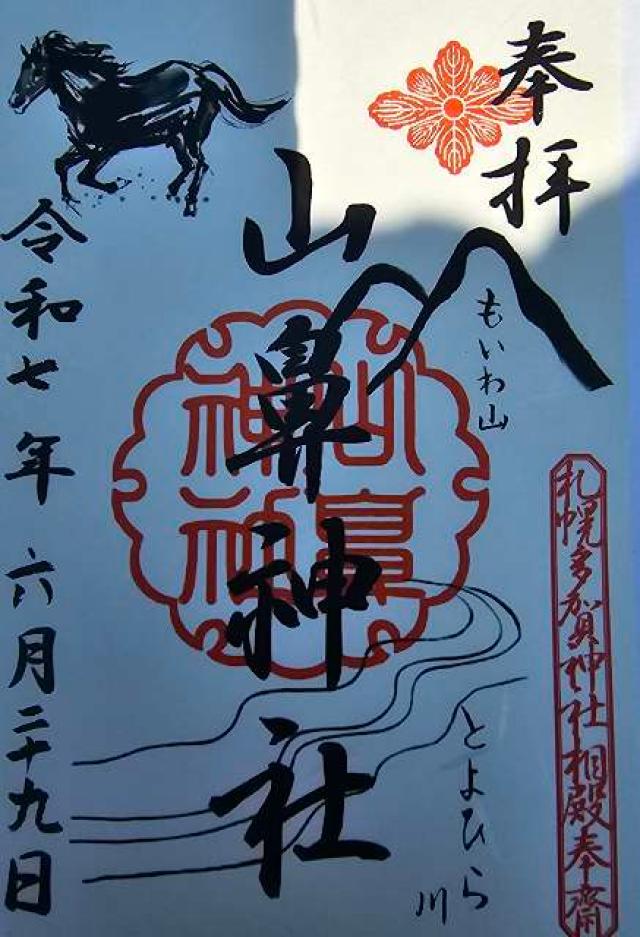 奉拝
もいわ山
札幌多賀神社相殿奉齋
山鼻神社
山鼻神社
とよひら川
令和七年六月二十九日